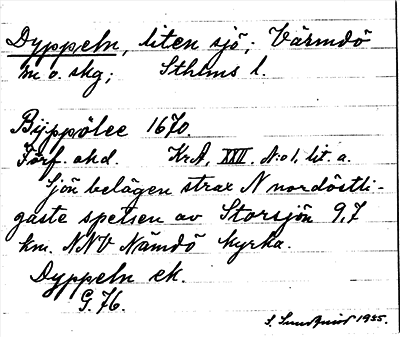 Dyppeln, liten sjö; Värmdö
m o. skg; Sthlms l.
Byppölee 1670.
Jorf. akd. KrA, XXII, N:o 1, lit. a.
Sjön belägen strax N nordöstli-
gaste spetsen av Storsjön 9,7
km. NNV Nämdö kyrka.
Dyppeln ek.
G. 76.
S. Sundqvist 1935.